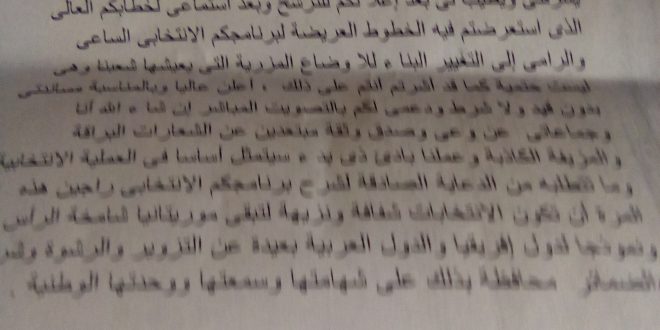 يشرفني ويطيب لي بعد إعلانكم للترشح وبعد استماعي لخطابكم العالي
الذي استعرضتم فيه الخطوط العريضة لبرنامجكم الانتخابي الساعي
والرامي إلى التغيير البناء للأوضاع المزرية التي يعيشها شعبنا وهي
ليست حتمية كما قد اشرتم انتم على ذلك ، اعلن عاليا وبالمناسبة مساندتي
بدون قيد ولا شرط ودعمي لكم بالتصويت المباشر إن شاء الله أنا
وجماعاتي عن وعي وصدق وثقة مبتعدين عن الشعارات البراقة
والمزيفة الكاذبة وعملنا بادئ ذي بدء سيتمثل أساسا في العملية الانتخابية
وما تتطلبه من الدعاية الصادقة لشرح برنامجكم الانتخابي راجين هذه
المرة أن تكون الانتخابات شفافة ونزيهة لتبقى موريتانيا شامخة الرأس
ونموذجا لدول إفريقيا والدول العربية بعيدة عن التزوير والرشوة وشراء
الضمائر محافظة بذلك على شهامتها وسمعتها ووحدتها الوطنية .